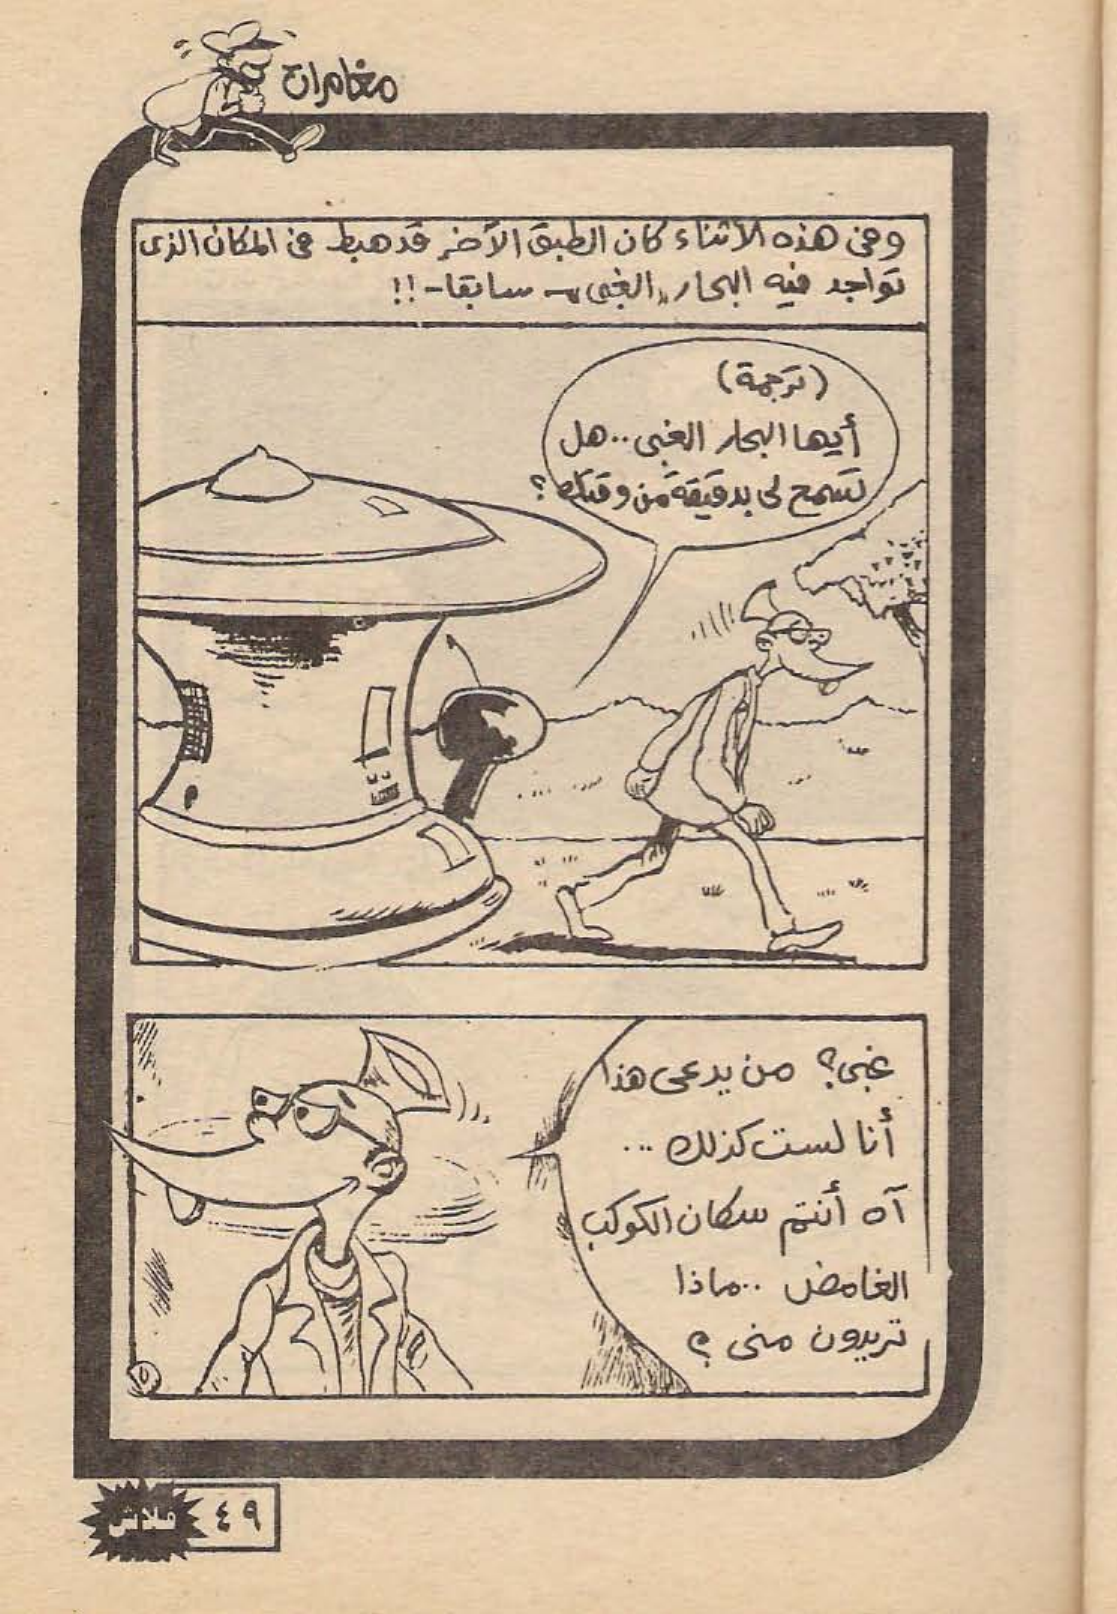 مغامرات
وفى هذه الأثناء كان الطبق الأخر قد هبط فى المكان الذى
تواجد فيه البحار "الغبى" - سابقا - !!
(ترجمة)
أيها البحار الغبى .. هل
تسمح لى بدقيقة من وقتك ؟
غبى؟ من يدعى هذا
أنا لست كذلك ...
آه أنتم سكان الكوكب
الغامض .. ماذا
تريدون منى ؟
٥
٤٩
فلاش